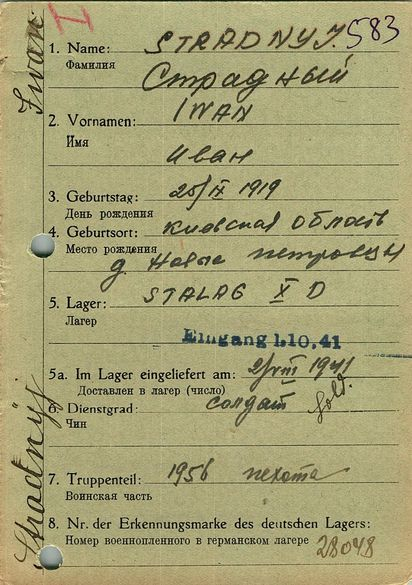 I
1. Name: STRADNYJ. 583
Фамилия
Страдный
2. Vornamen: IWAN
Имя
Иван
3. Geburtstag: 25/IX 1919
День рождения
4. Geburtsort: Киевская область
Место рождения
д. Новые петровцы
5. Lager: STALAG X D
Лагер
Eingang 1.10.41
5a. Im Lager eingeliefert am: 2/VIII 1941
Доставлен в лагер (число)
6. Dienstgrad: солдат Sold.
Чин
7. Truppenteil: 195б пехота
Воинская часть
8. Nr. der Erkennungsmarke des deutschen Lagers:
Номер военнопленного в германском лагере 28048
Stradnyj Iwan